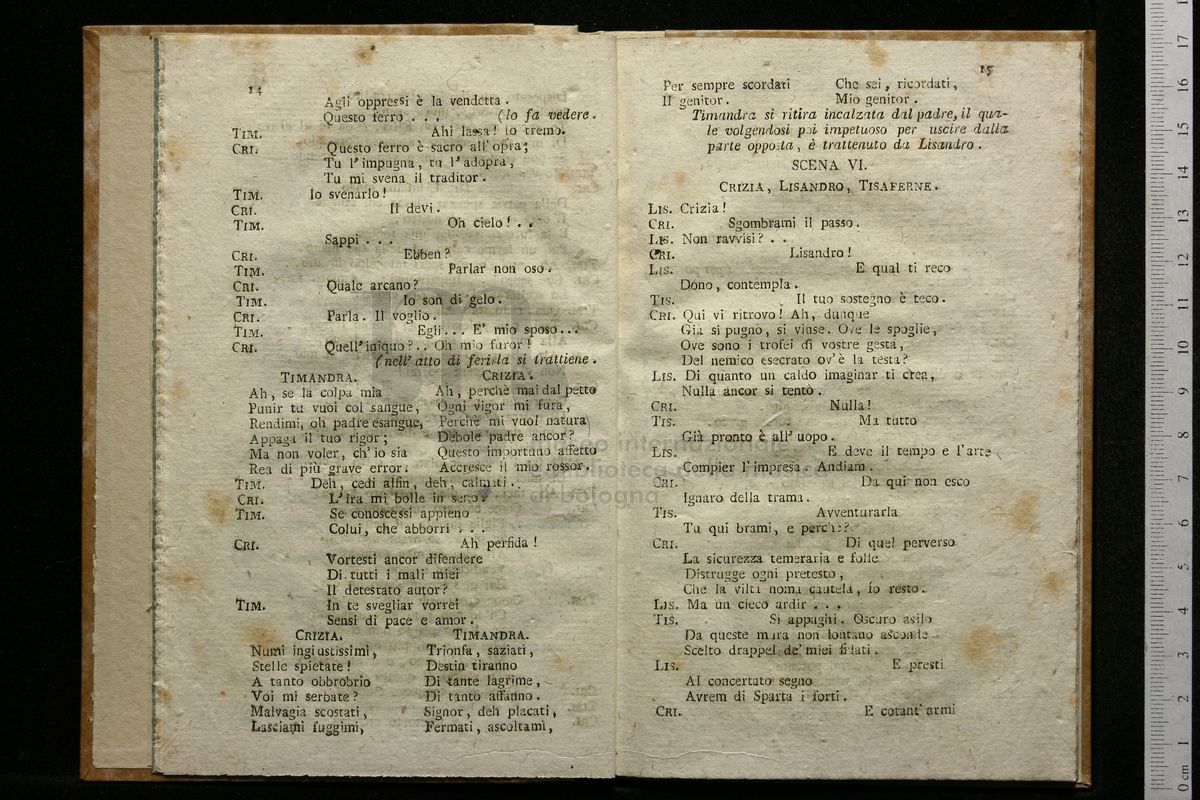 14
Agli oppressi è la vendetta .
Questo ferro . . . (lo fa vedere.
TIM. Ahi lassa! Io tremo.
CRI. Questo ferro è sacro all' opra;
Tu l'impugna, tu l'adopra,
Tu mi svena il traditor .
TIM. Io svenarlo!
CRI. Il devi .
TIM. Oh cielo! . .
Sappi . . .
CRI. Ebben?
TIM. Parlar non oso .
CRI. Quale arcano?
TIM. Io son di gelo .
CRI. Parla . Il voglio .
TIM. Egli . . . E' mio sposo . . .
CRI. Quell' iniquo? . . Oh mio furor!
(nell' atto di ferirla si trattiene .
TIMANDRA. CRIZIA.
Ah, se la colpa mia Ah, perchè mai dal petto
Punir tu vuoi col sangue, Ogni vigor mi fura,
Rendimi, oh padre esangue, Perchè mi vuol natura
Appaga il tuo rigor; Debole padre ancor?
Ma non voler, ch'io sia Questo importuno affetto
Rea di più grave error. Accresce il mio rossor.
TIM. Deh, cedi alfin, deh, calmati . .
CRI. L'ira mi bolle in seno .
TIM. Se conoscessi appieno
Colui, che abborri . . .
CRI. Ah perfida!
Vortesti ancor difendere
Di tutti i mali miei
Il detestato autor?
TIM. In te svegliar vorrei
Sensi di pace e amor .
CRIZIA. TIMANDRA.
Numi ingiustissimi, Trionfa, saziati,
Stelle spietate! Destin tiranno
A tanto obbrobrio Di tante lagrime,
Voi mi serbate? Di tanto affanno .
Malvagia scostati, Signor, deh placati,
Lasciami fuggimi, Fermati, ascoltami,
15
Per sempre scordati Che sei, ricordati,
Il genitor . Mio genitor .
Timandra si ritira incalzata dal padre, il qua-
le volgendosi poi impetuoso per uscire dalla
parte opposta, è trattenuto da Lisandro .
SCENA VI.
CRIZIA, LISANDRO, TISAFERNE.
LIS. Crizia!
CRI. Sgombrami il passo .
LIS. Non ravvisi? . .
CRI. Lisandro!
LIS. E qual ti reco
Dono, contempla .
TIS. Il tuo sostegno è teco .
CRI. Qui vi ritrovo! Ah, dunque
Già si pugnò, si vinse . Ove le spoglie,
Ove sono i trofei di vostre gesta,
Del nemico esecrato ov' è la testa?
LIS. Di quanto un caldo imaginar ti crea,
Nulla ancor si tentò .
CRI. Nulla!
TIS. Ma tutto
Già pronto è all' uopo .
LIS. E deve il tempo e l'arte
Compier l'impresa . Andiam .
CRI. Da qui non esco
Ignaro della trama .
TIS. Avventurarla
Tu qui brami, e perchè?
CRI. Di quel perverso
La sicurezza temeraria e folle
Distrugge ogni pretesto,
Che la viltà noma cautela, io resto .
LIS. Ma un cieco ardir . . .
TIS. Si appaghi . Oscuro asilo
Da queste mura non lontano asconde
Scelto drappel de' miei fidati .
LIS. E presti
Al concertato segno
Avrem di Sparta i forti .
CRI. E cotant' armi
museo internazionale
biblioteca della musica
di bologna
0 cm 1 2 3 4 5 6 7 8 9 10 11 12 13 14 15 16 17